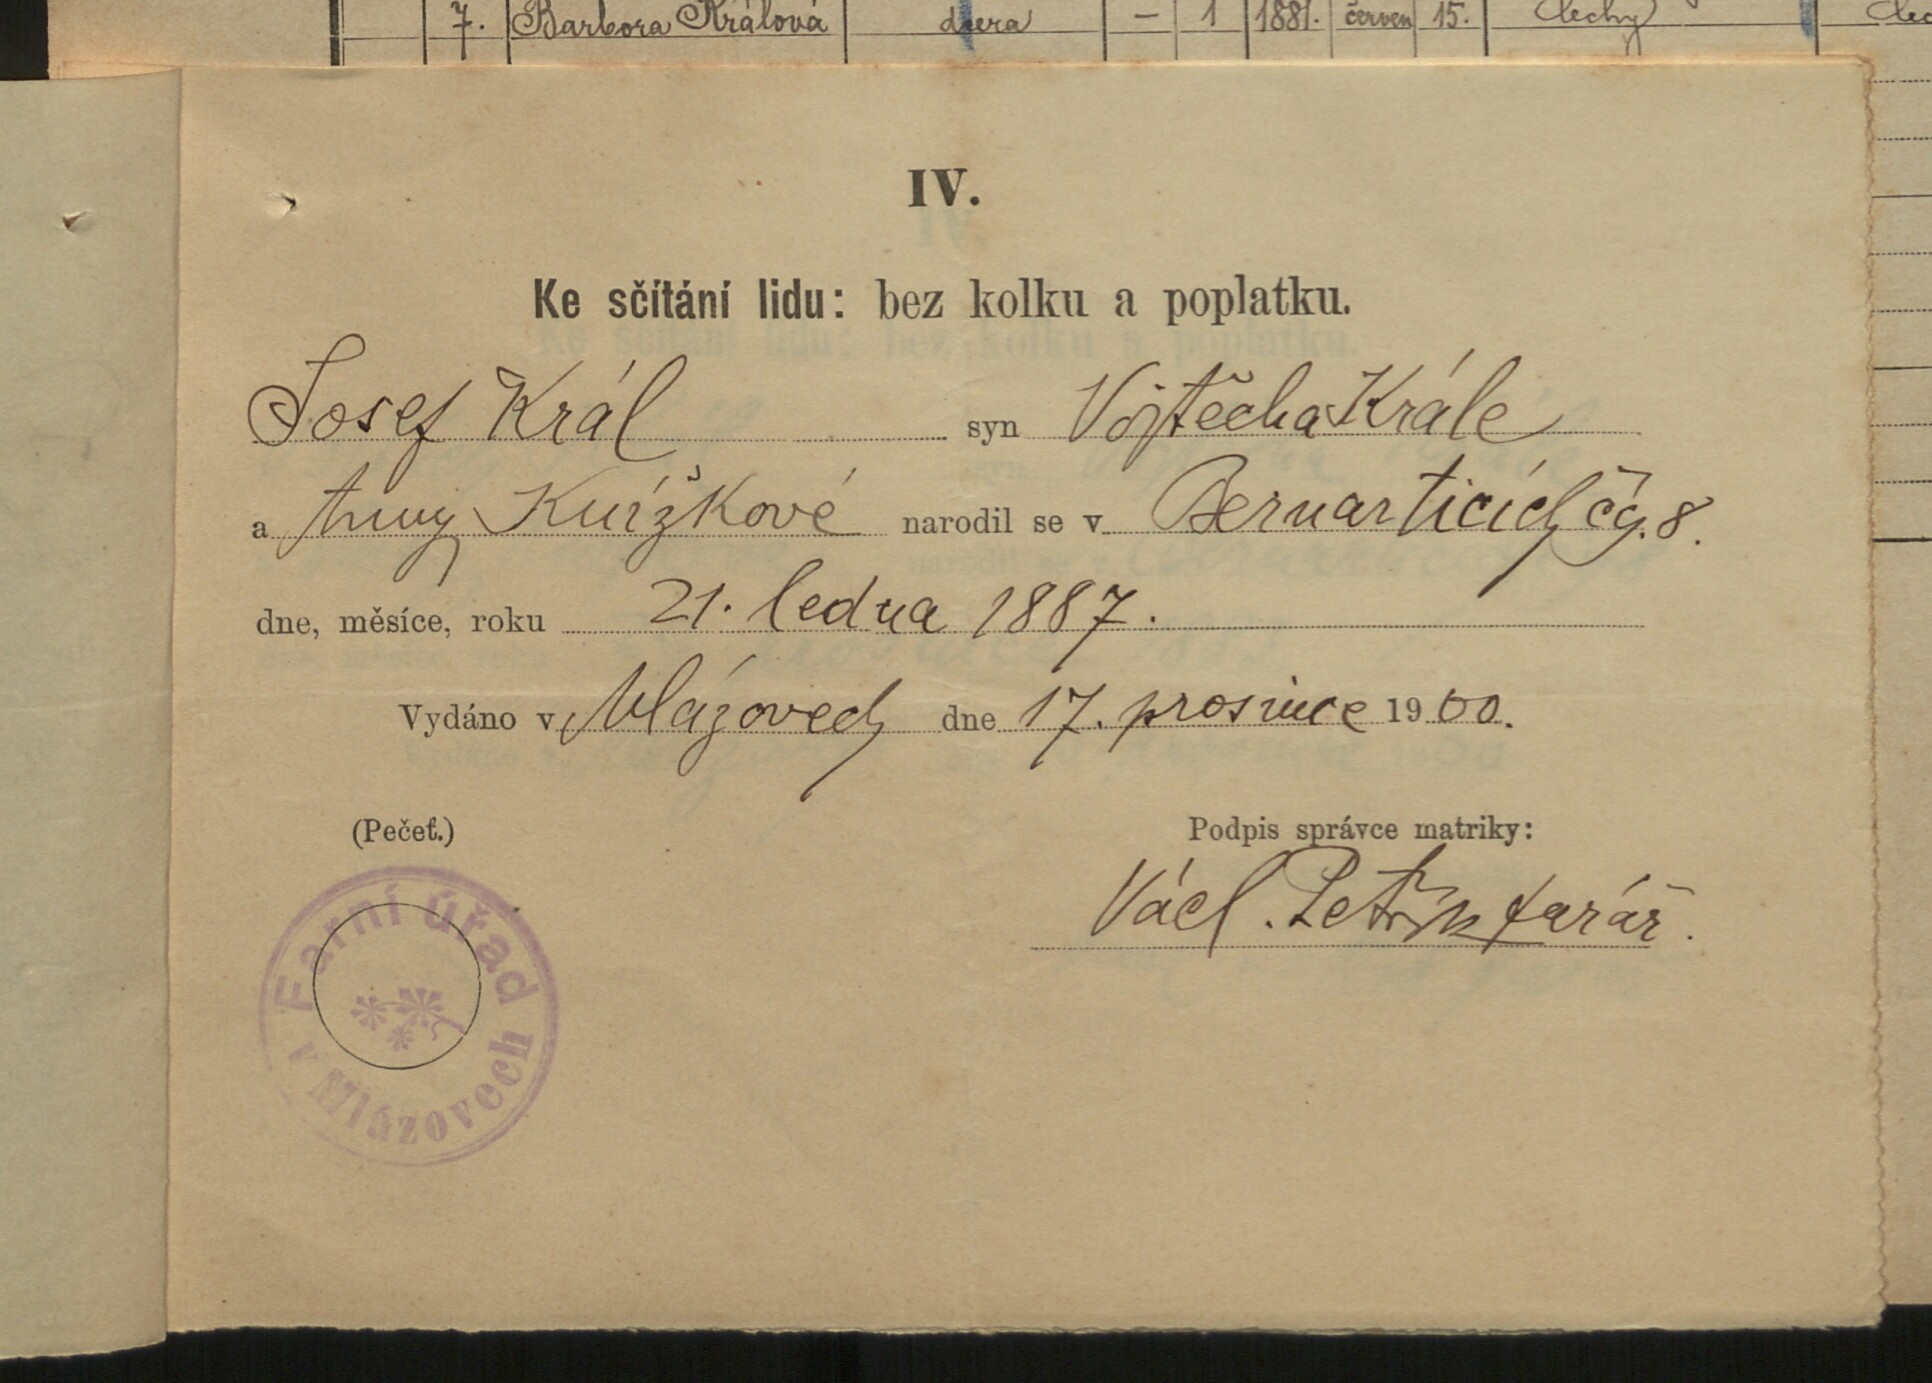 7. Barbora Králová dcera – 1 1881. červen 15. Čechy
IV.
Ke sčítání lidu: bez kolku a poplatku.
Josef Král syn Vojtěcha Krále
a Anny Knížkové narodil se v Bernarticích čís. 8.
dne, měsíce, roku 21. ledna 1887.
Vydáno v Mlázovech dne 17. prosince 1900.
(Pečeť.) Podpis správce matriky:
Václ. Petřík farář.
Farní úřad
v Mlázovech